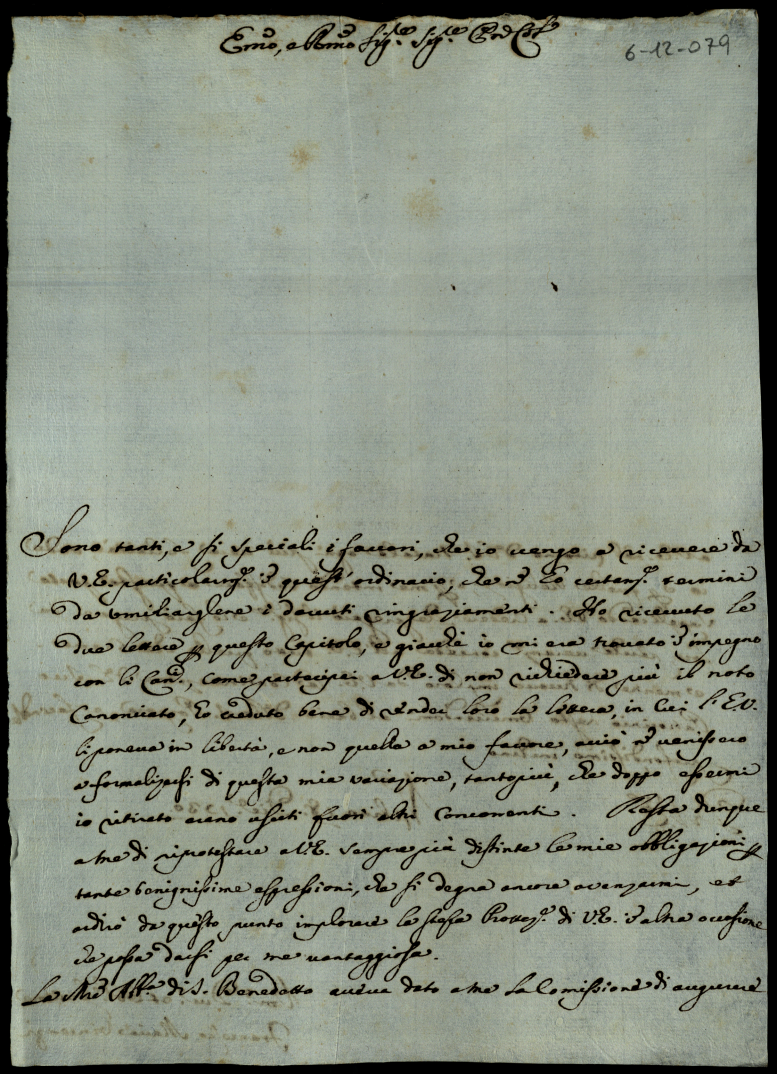 Emõ, e Rmõ Sig.re Sig.re Prõ Col.mo
6-12-079
Sono tanti, e si speciali i favori, che io vengo a ricevere da
V.E. particolarm.e ĩ quest'ordinario, che nõ ho certam.e termini
da umiliarglene i dovuti ringraziamenti. Ho ricevuto le
due lettere p questo Capitolo, e giacchè io mi era trovato ĩ impegno
con li Can.ci, come partecipai a V.E. di non richiedere più il noto
Canonicato, ho creduto bene di render loro la lettera, in cui l'E.V.
li poneva in libertà, e non quella a mio favore, acciò nõ venissero
a formalizarsi di questa mia variazione, tantopiù, che doppo essermi
io ritirato erano usciti fuori altri Concorrenti. Resta dunque
a me di riprotestare a V.E. sempre più distinte le mie obbligazioni p
tante benignissime espressioni, che si degna ancora avanzarmi, et
ardirò da questo punto implorare la stessa Protez.e di V.E. ĩ altra occasione
che possa darsi per me vantaggiosa.
La Mrẽ Abb.a di S. Benedetto aveva dato a me la Comissione di augurare